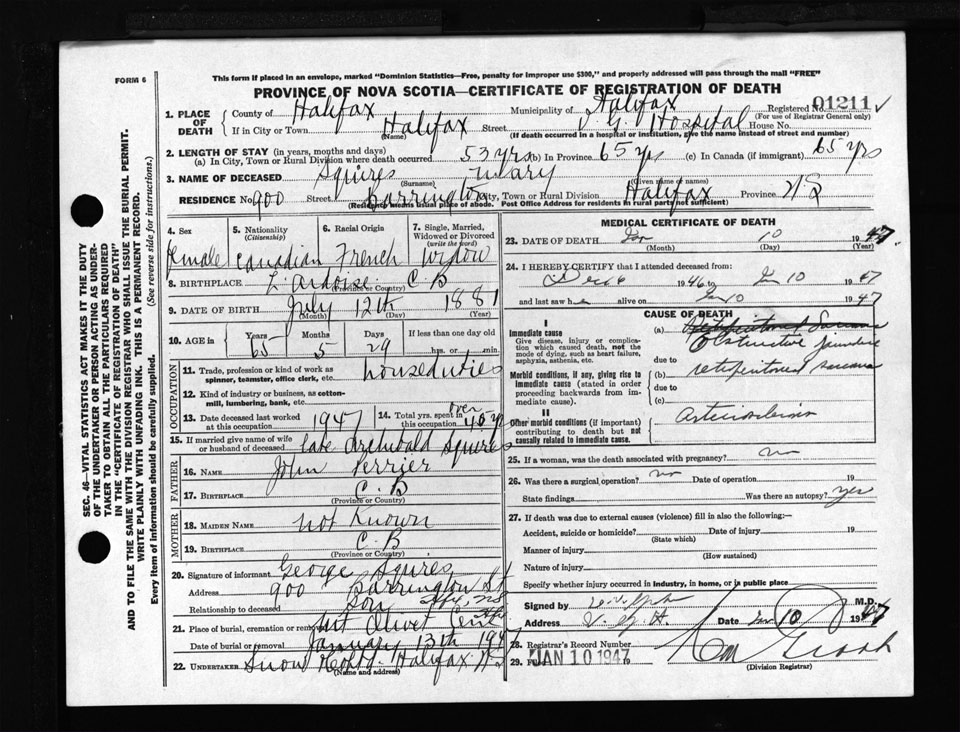 FORM 6
This form if placed in an envelope, marked "Dominion Statistics—Free, penalty for improper use $300," and properly addressed will pass through the mail "FREE"
PROVINCE OF NOVA SCOTIA—CERTIFICATE OF REGISTRATION OF DEATH
SEC. 46—VITAL STATISTICS ACT MAKES IT THE DUTY
OF THE UNDERTAKER OR PERSON ACTING AS UNDER-
TAKER TO OBTAIN ALL THE PARTICULARS REQUIRED
IN THE "CERTIFICATE OF REGISTRATION OF DEATH"
AND TO FILE THE SAME WITH THE DIVISION REGISTRAR WHO SHALL ISSUE THE BURIAL PERMIT.
WRITE PLAINLY WITH UNFADING INK. THIS IS A PERMANENT RECORD.
Every item of information should be carefully supplied. (See reverse side for instructions.)
1. PLACE OF DEATH
County of Halifax Municipality of Halifax Registered No. 01211
(For use of Registrar General only)
If in City or Town Halifax Street V. G. Hospital House No.
(Name) (If death occurred in a hospital or institution, give the name instead of street and number)
2. LENGTH OF STAY (in years, months and days)
(a) In City, Town or Rural Division where death occurred 53 yrs (b) In Province 65 yrs (c) In Canada (if immigrant) 65 yrs
3. NAME OF DECEASED Squires Mary
(Surname) (Given name or names)
RESIDENCE No. 900 Street Barrington City, Town or Rural Division Halifax Province N S
(Residence means usual place of abode. Post Office Address for residents in rural parts not sufficient)
4. Sex female
5. Nationality (Citizenship) Canadian
6. Racial Origin French
7. Single, Married, Widowed or Divorced (write the word) Widow
8. BIRTHPLACE L'Ardoise C B
(Province or Country)
9. DATE OF BIRTH July 12th 1881
(Month) (Day) (Year)
10. AGE in Years 65 Months 5 Days 29 If less than one day old
hrs. or min.
OCCUPATION
11. Trade, profession or kind of work as spinner, teamster, office clerk, etc. houseduties
12. Kind of industry or business, as cotton-mill, lumbering, bank, etc.
13. Date deceased last worked at this occupation 1947
14. Total yrs. spent in this occupation over 40 yrs
15. If married give name of wife or husband of deceased late Archibald Squires
FATHER
16. NAME John Perrier
17. BIRTHPLACE C. B
(Province or Country)
MOTHER
18. MAIDEN NAME not Known
19. BIRTHPLACE C. B
(Province or Country)
20. Signature of informant George Squires
Address 900 Barrington St
Relationship to deceased Son Hfx, NS
21. Place of burial, cremation or removal Mt Olivet Cem Hfx
Date of burial or removal January 13th 1947
22. UNDERTAKER Snow & Co Ltd. Halifax N S
(Name and address)
MEDICAL CERTIFICATE OF DEATH
23. DATE OF DEATH Jan 10 1947
(Month) (Day) (Year)
24. I HEREBY CERTIFY that I attended deceased from
Dec 1946 to Jan 10 1947
and last saw her alive on Jan 10 1947
CAUSE OF DEATH
I
Immediate cause
Give disease, injury or complication which caused death, not the mode of dying, such as heart failure, asphyxia, asthenia, etc.
(a) Retroperitoneal Sarcoma
Obstructive jaundice
due to
Morbid conditions, if any, giving rise to immediate cause (stated in order proceeding backwards from immediate cause).
(b) retroperitoneal sarcoma
due to
(c)
II
Other morbid conditions (if important) contributing to death but not causally related to immediate cause.
arteriosclerosis
25. If a woman, was the death associated with pregnancy? no
26. Was there a surgical operation? no Date of operation 19
State findings Was there an autopsy? yes
27. If death was due to external causes (violence) fill in also the following:—
Accident, suicide or homicide? Date of injury 19
(State which)
Manner of injury
(How sustained)
Nature of injury
Specify whether injury occurred in industry, in home, or in public place
Signed by M.D.
Address V. G. H. Date Jan 10 1947
28. Registrar's Record Number
29. Filed JAN 10 1947 19
(Division Registrar)